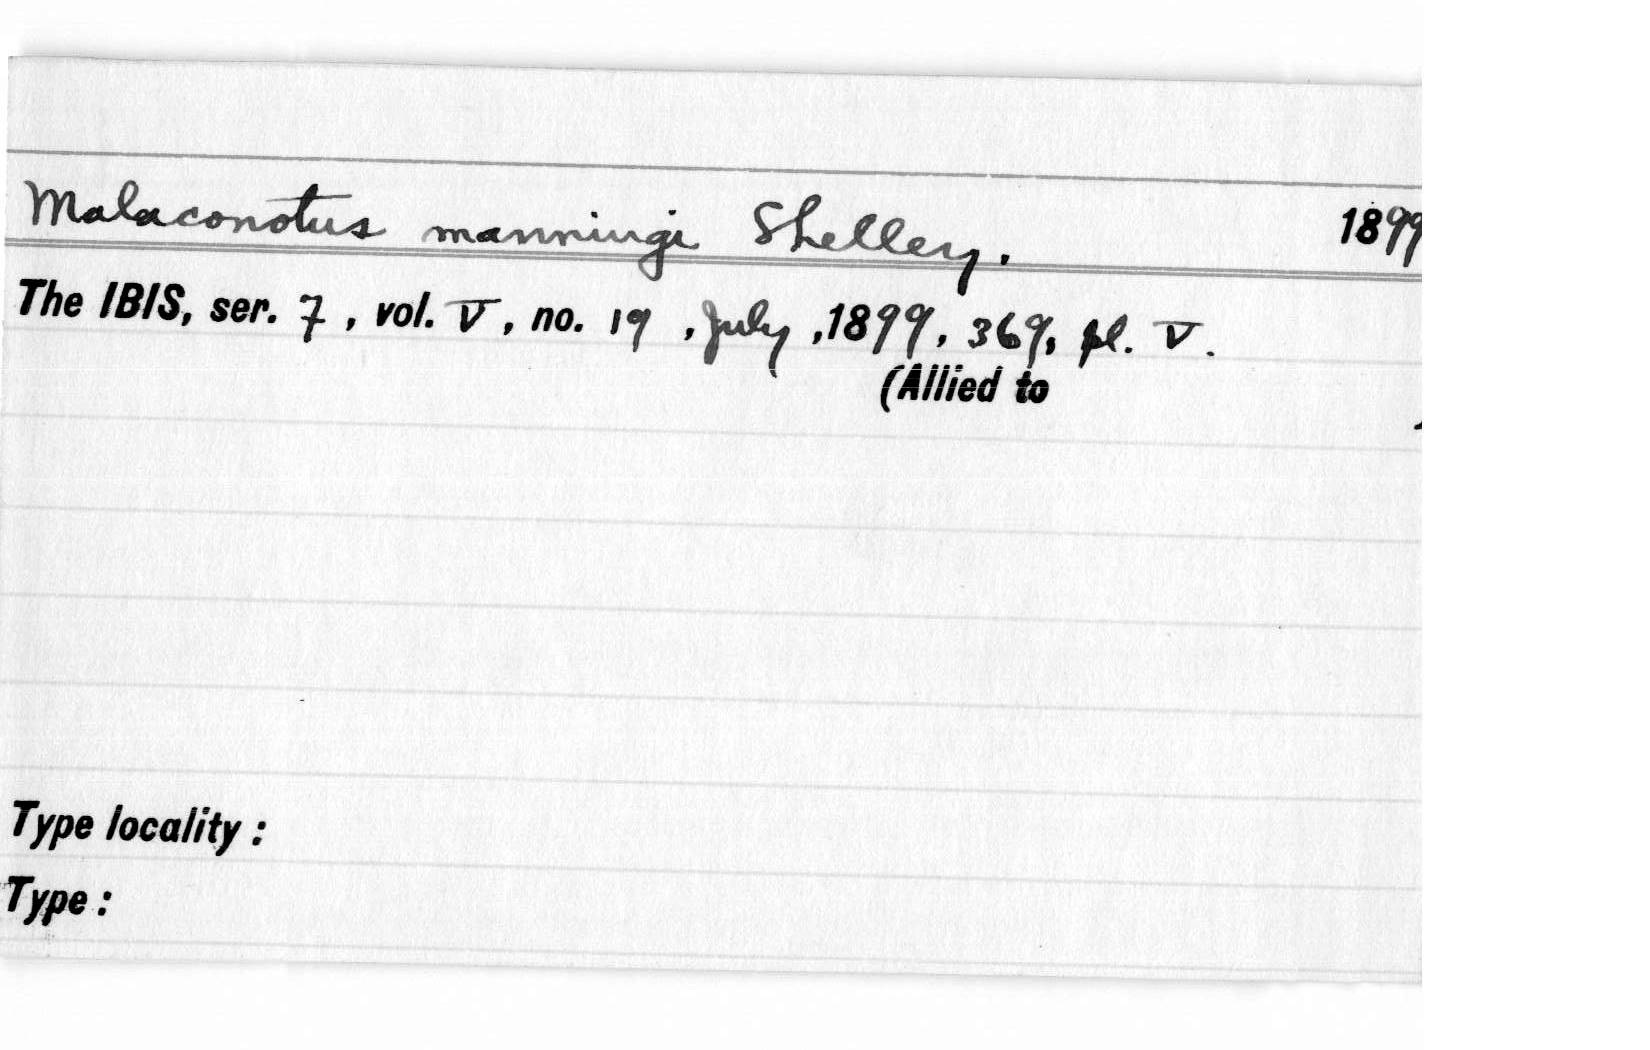 Malaconotus manningi Shelley. 1899
The IBIS, ser. 7, vol. V, no. 19, July, 1899, 369, pl. V.
(Allied to
Type locality :
Type :